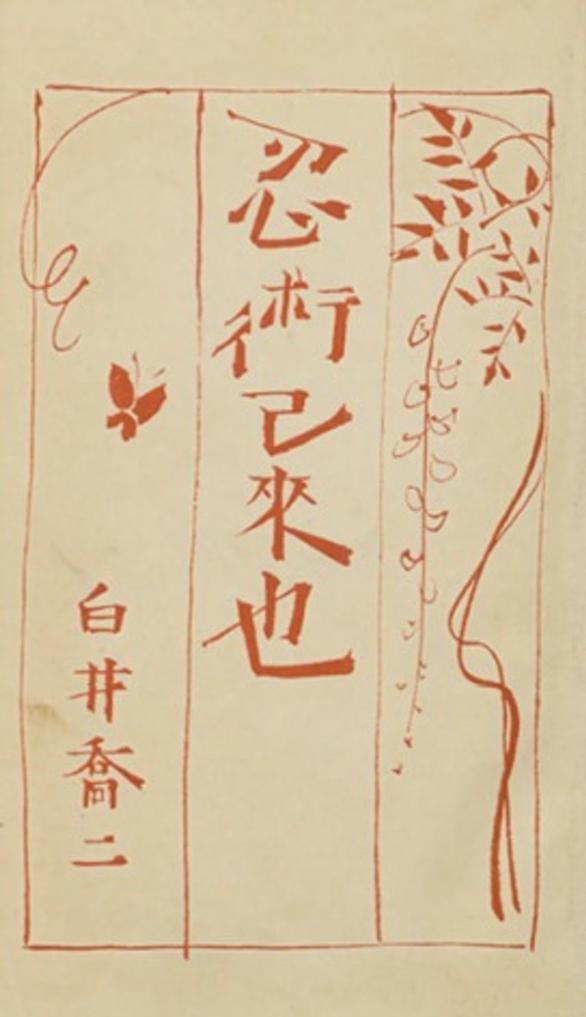 忍術己來也
白井喬二